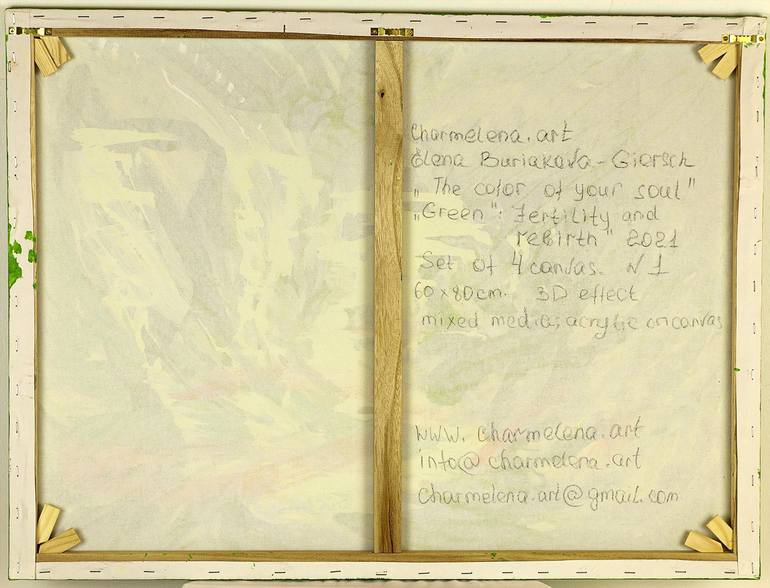 Charmelena.art
Elena Buriakova-Giersch
„The color of your soul"
„Green": Fertility and
rebirth" 2021
Set of 4 canvas. N 1
60x80cm. 3D effect
mixed media; acrylic on canvas
www. charmelena.art
info@charmelena.art
charmelena.art@gmail.com